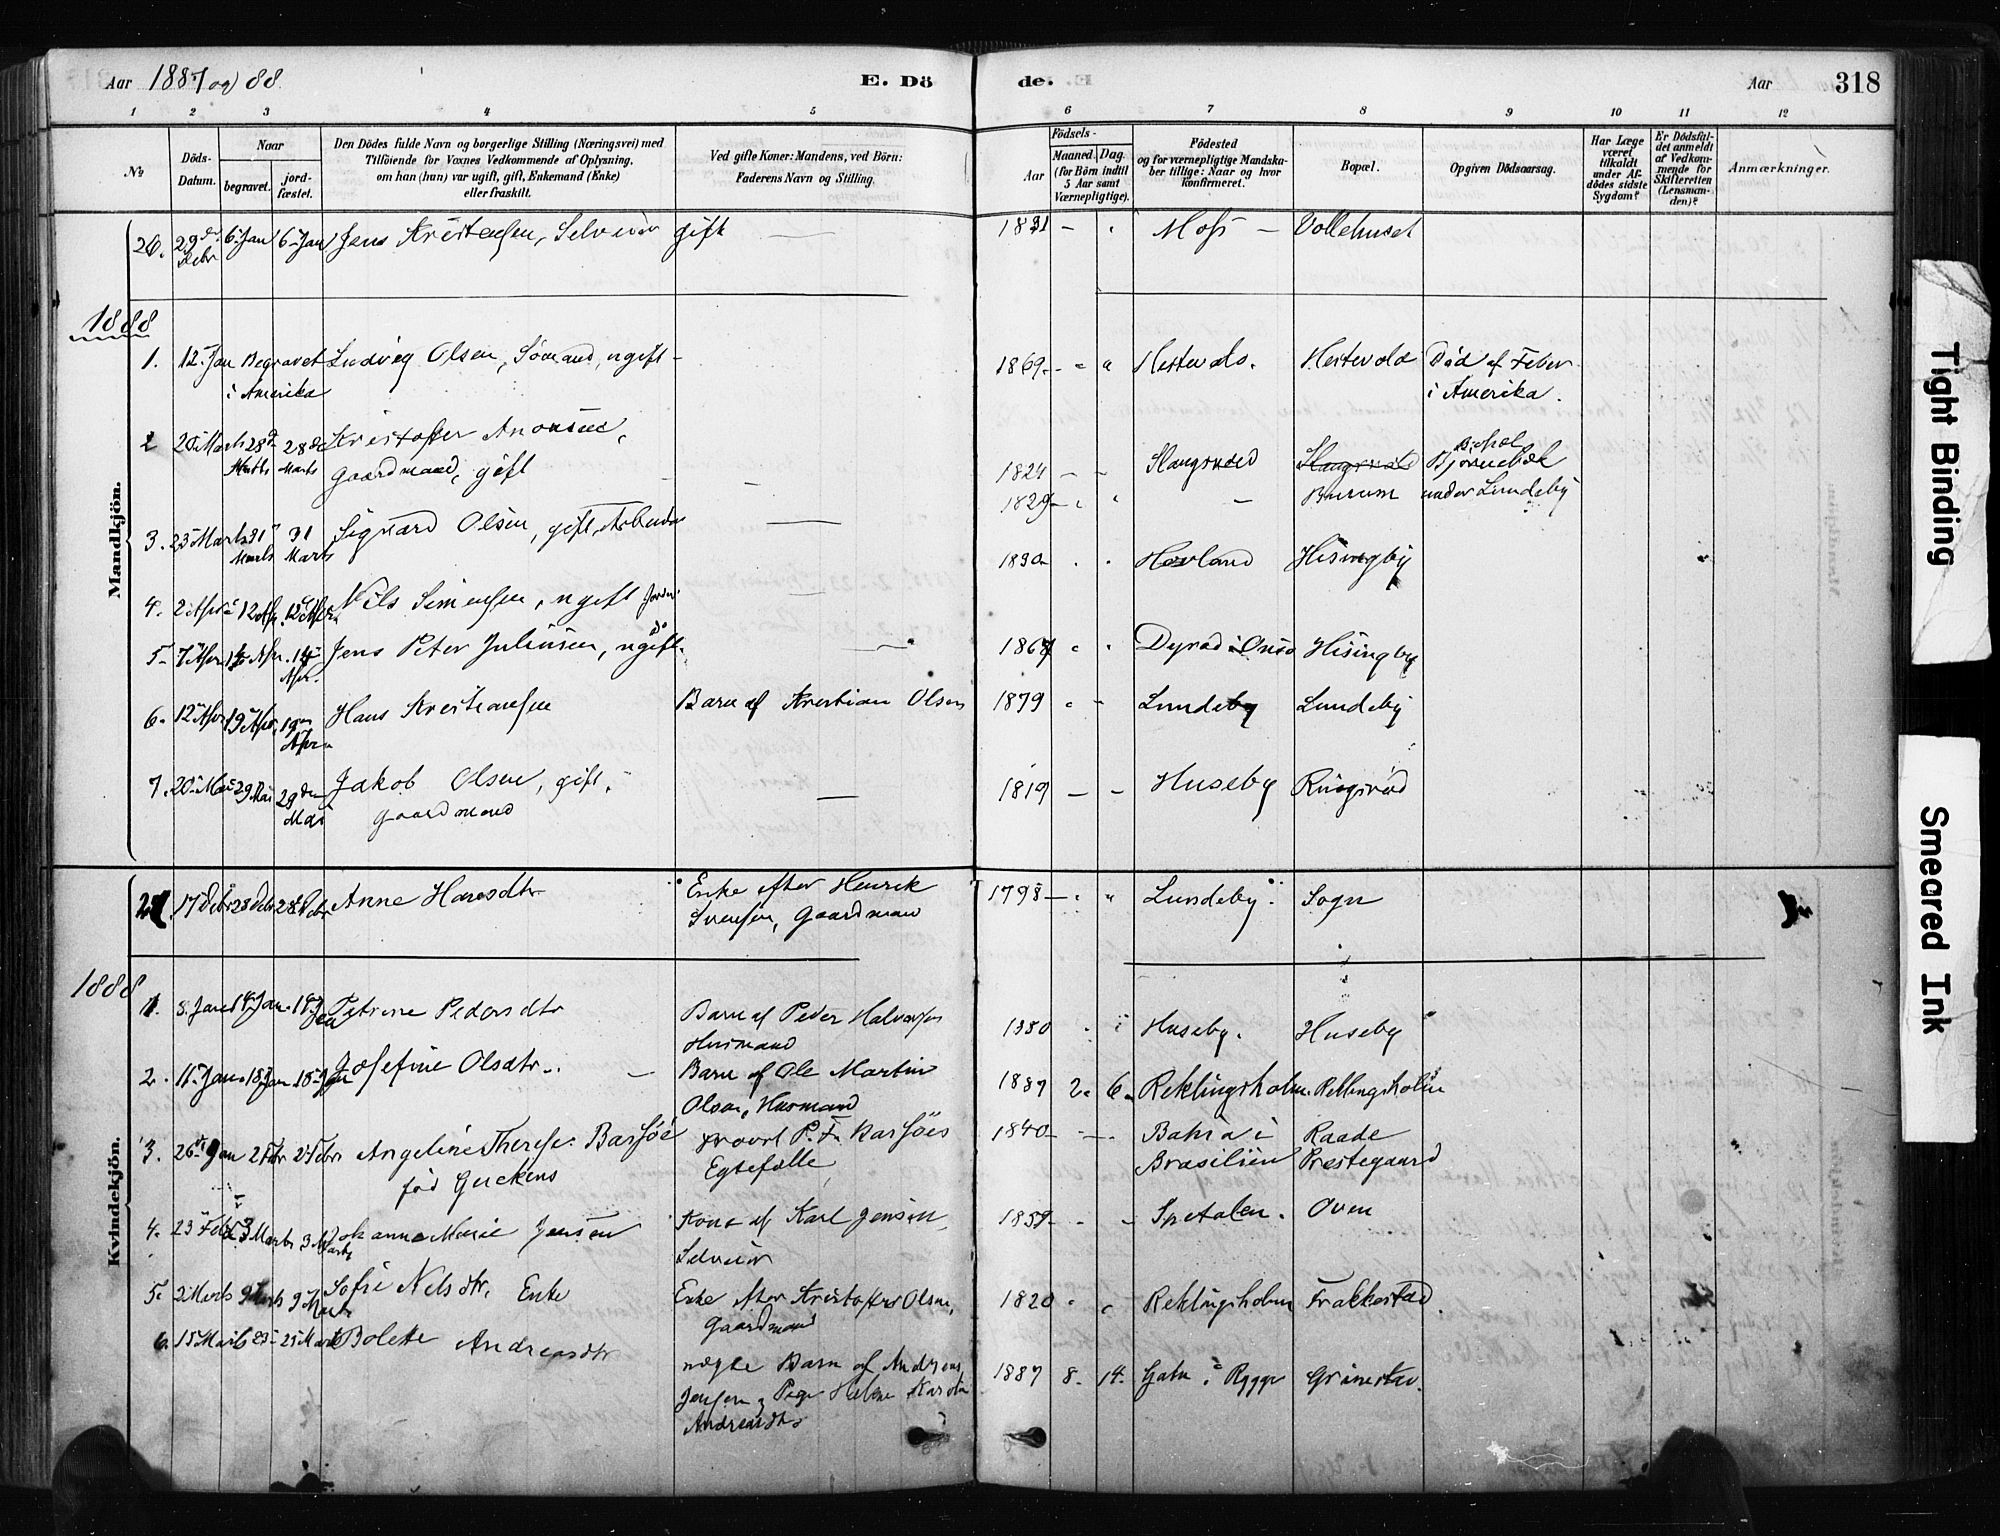 Aar 1887 og 88.
E. Döde.
Aar 318
1 2 3 4 5 6 7 8 9 10 11 12
No
Döds-Datum.
Naar
begravet.
jord-fæstet.
Den Dödes fulde Navn og borgerlige Stilling (Næringsvei) med
Tilföiende for Voxnes Vedkommende af Oplysning,
om han (hun) var ugift, gift, Enkemand (Enke)
eller fraskilt.
Ved gifte Koner: Mandens, ved Börn:
Faderens Navn og Stilling.
Födsels-
Aar
Maaned. Dag.
(for Börn indtil
5 Aar samt
Værnepligtige).
Födested
og for værnepligtige Mandska-
ber tillige: Naar og hvor
konfirmeret.
Bopæl.
Opgiven Dödsaarsag.
Har Læge
været
tilkaldt
under Af-
dödes sidste
Sygdom?
Er Dödsfal-
det anmeldt
af Vedkom-
mende for
Skifteretten
(Lensman-
den)?
Anmærkninger.
Mandkjön.
20. 29de Debr 6 Jan 6 Jan Jens Kristensen, Selveier gift — 1831 - Moss - Vollehuset
1888
1. 12 Jan Begravet i Amerika Ludvig Olsen, Sömand, ugift - 1869 - Hestevold. Hestevold Död af Feber
i Amerika.
2 20 Marts 28de Marts 28de Marts Kristoffer
Gaardmand, gift - 1824 - - Slangsvold
3. 23 Marts 31 Marts 31 Marts Sigvard Olsen, gift, Arbeider — 1829 - Burum under Lundeby
4. 2 April 12 Apr. 12 Apr. Nils Simensen, ugift — 1830 Hovland Hisingby
5 7 Apr 14 Apr. 14 Apr. Jens Peter Juliusen, ugift. — 1867 Dyröd i Onsö Hisingby
6. 12 Apr 19 Apr. 19 Apr. Hans Kristiansen Barn af Kristian Olsen 1879 - Lundeby Lundeby
7. 20 Mai 29 Mai 29den Mai Jakob Olsen, gift,
Gaardmand — 1819 - - Huseby Ringsröd
Kvindekjön.
21. 17 Debr 28 Debr 28 Debr Anne Hansdtr Enke efter Henrik
Svensen, Gaardmand 1798 - Lundeby. Sogn
1888
1. 8 Jan 18 Jan. 18 Jan Petrine Pedersdtr Barn af Peder Halvorsen
Husmand 1880 Huseby. Huseby
2. 11 Jan. 18 Jan 18 Jan Josefine Olsdtr. — Barn af Ole Martin
Olsen, Husmand 1887 2. 6. Reklingsholm. Reklingsholm
3. 26 Jan 2 Febr 2 Febr Angeline Therese Barfoe
föd Gerckens provst P. F. Barföes
Egtefælle, 1840 - - Bahia i
Brasilien Raade
Prestegaard
4. 23 Febr 3 Marts 3 Marts Johanne Marie Jensen Kone af Karl Jensen,
Selveier 1859 - - Spetalen. Oven
5. 2 Marts 9 Marts 9 Marts Sofie Nelsdtr. Enke Enke efter Kristoffer Olsen,
Gaardmand 1820 Reklingsholm Frakkestad.
6. 15 Marts 25 25 Marts Bolette Andreasdtr uægte Barn af Andreas
Jensen og Pige Helene
Andreasdtr. 1887 8. 14. Gatu i Rygge Grimestad.
Tight Binding
Smeared Ink